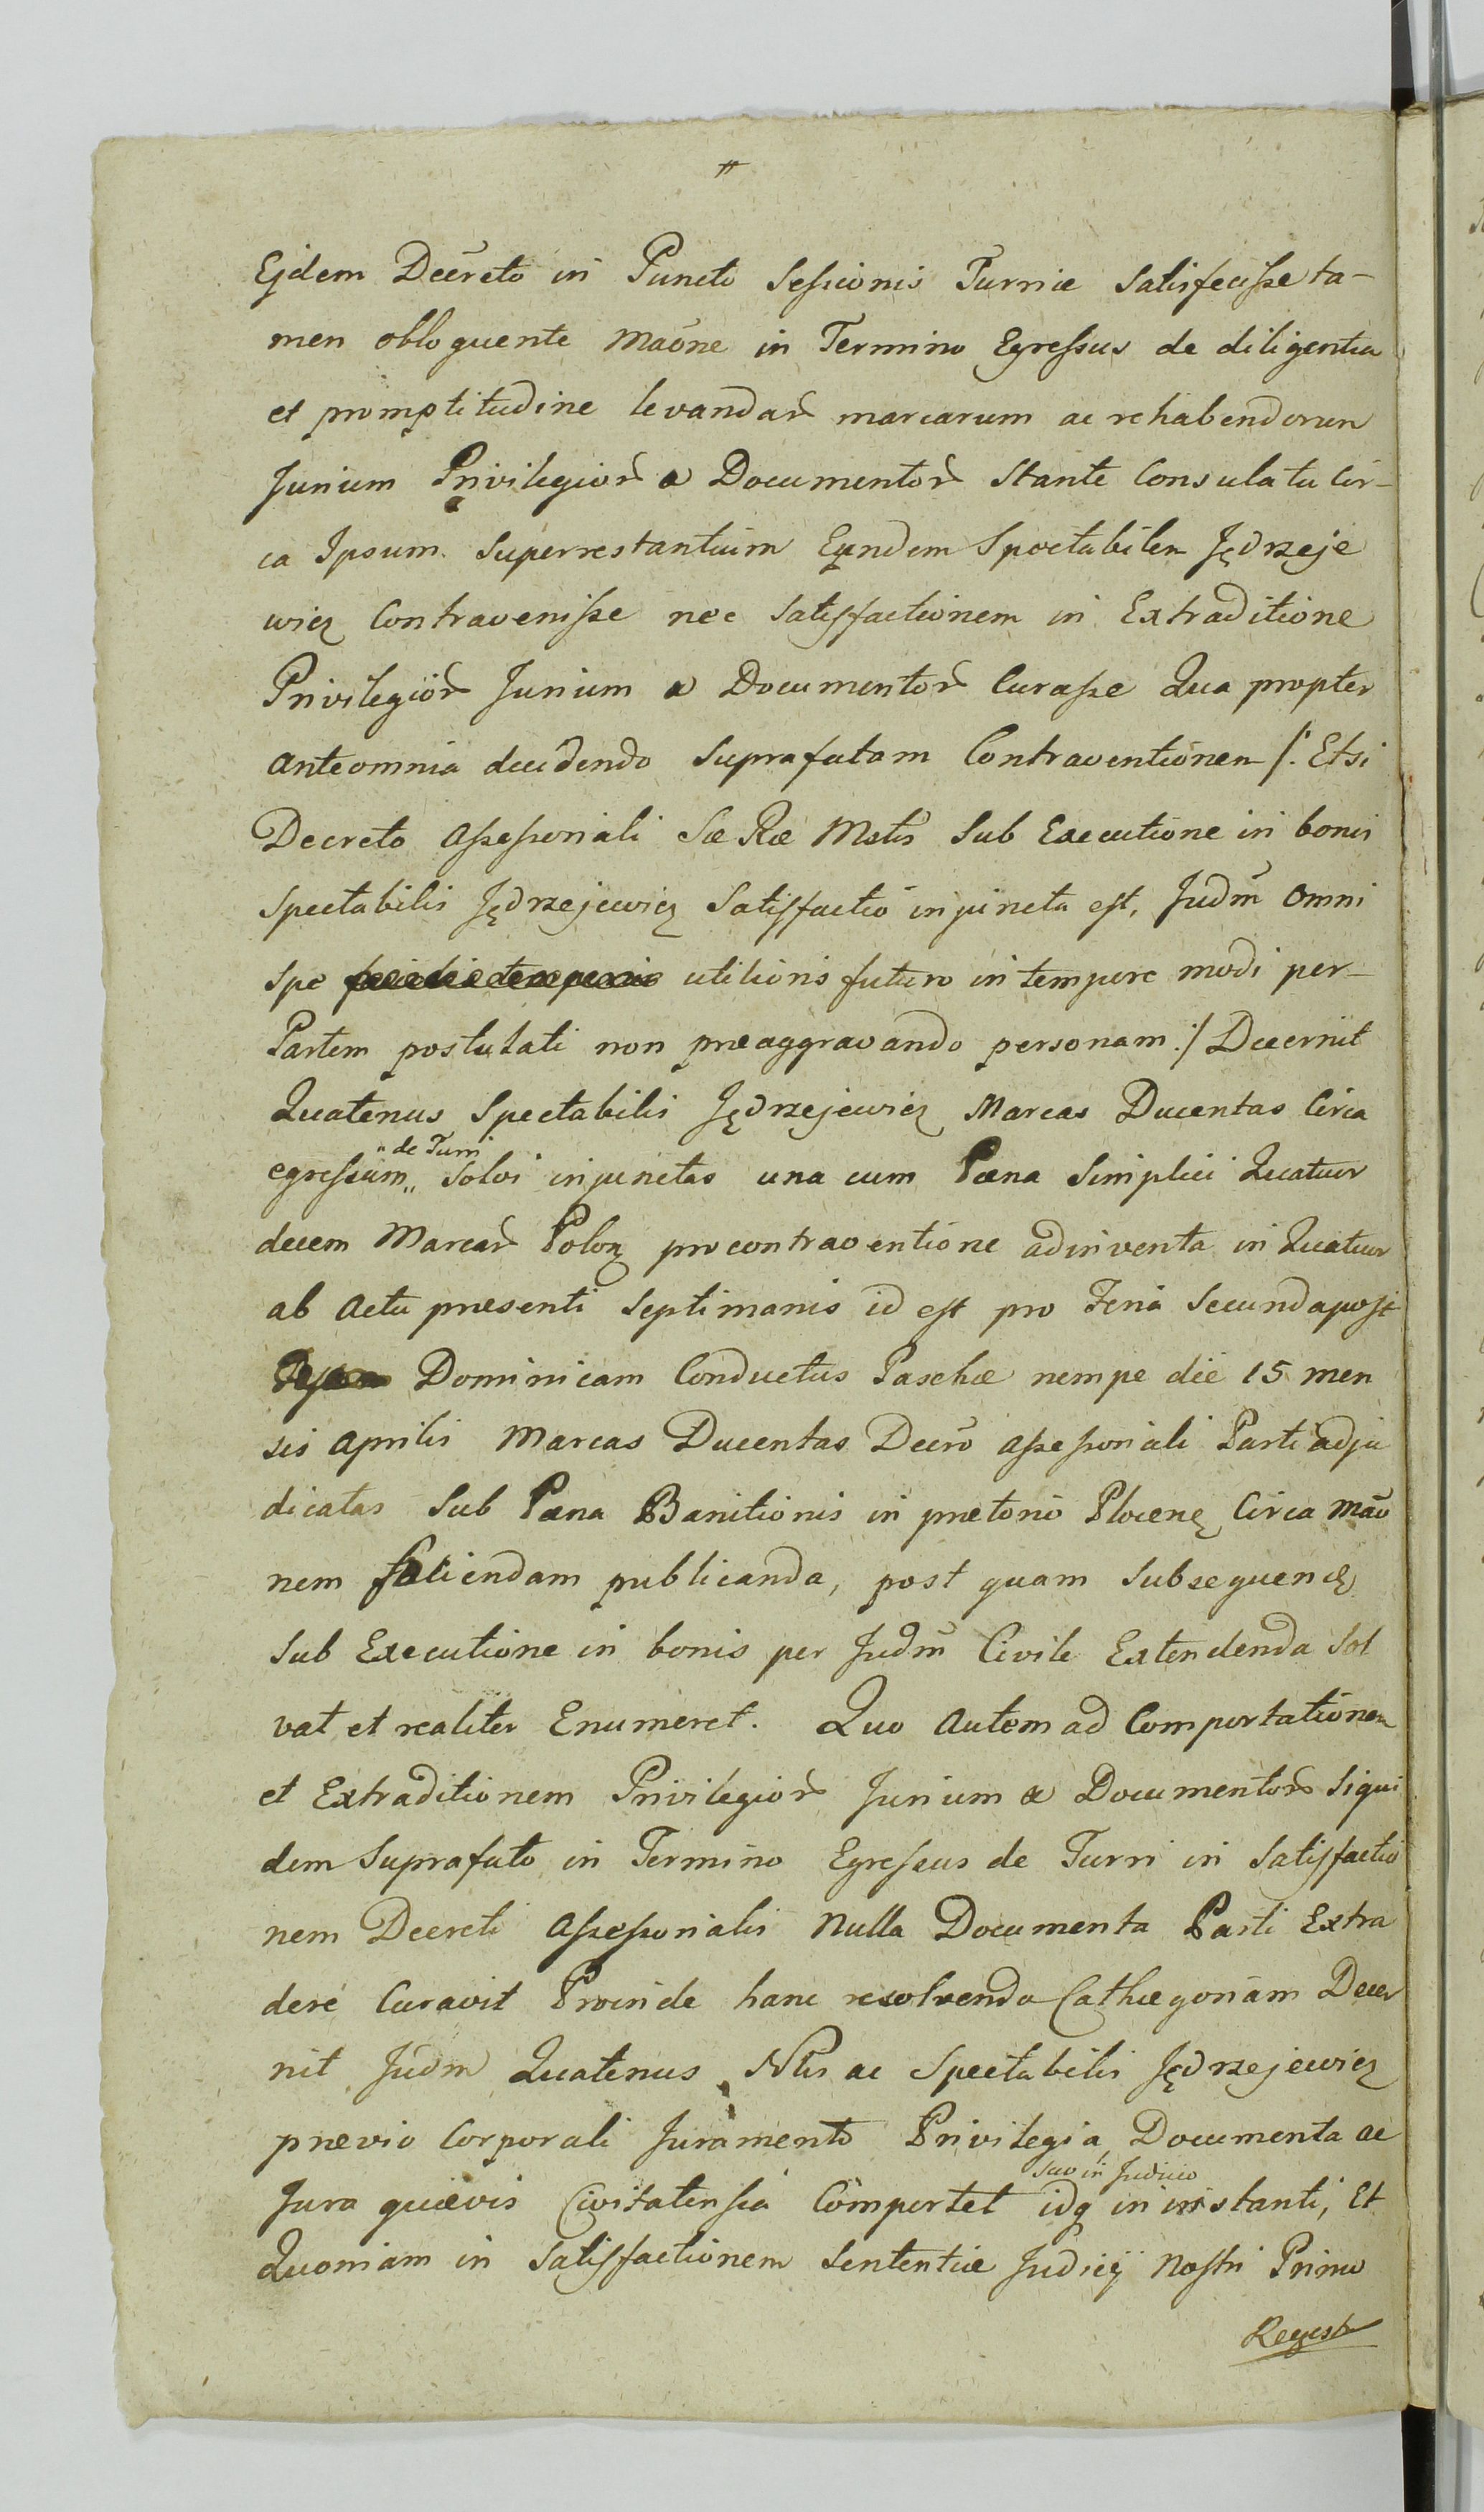 Ejdem Decreto in Puncto Sessionis Turriæ Satisfecisse ta-
men obloquente Maone in Termino Egressus de diligentia
et promptitudine levandar marcarum ac rehabendorum
Jurium Privilegior & Documentor Stante Consulatu Cir-
ca Ipsum Superrestantium Eundem Spectabilem Jędrzeje
wicz Contravenisse nec Satisfactionem in Extraditione
Privilegior Jurium & Documentor Curasse Qua propter
anteomnia decidendo Suprafatam Contraventionem /: Etsi
Decreto Assessoriali Sæ Ræ Mstis Sub Executione in bonis
Spectabilis Jędrzejewicz Satisfactio injuncta est, Judm omni
spe utilioris futuro in tempore modi per-
Partem postulati non præaggravando personam :/ Decernit
Quatenus Spectabilis Jędrzejewicz Marcas Ducentas Circa
„ de Turri
egressum „ Solvi injunctas una cum Pæna Simplici Quatuor
decem Marcar Polon pro contraventione adinventa in Quatuor
ab actu præsenti Septimanis id est pro Feria Secunda post
Dominicam Conductus Paschæ nempe die 15 men
sis Aprilis Marcas Ducentas Decro assessoriali Parti adju
dicatas Sub Pæna Banitionis in prætorio Plocen Circa mao
nem faciendam publicanda, post quam Subsequen
Sub Executione in bonis per Judm Civile Extendenda Sol
vat et realiter Enumeret. Quo Autem ad Comportationem
et Extraditionem Privilegior Jurium & Documentor Siqui
dem Suprafato in Termino Egressus de Turri in Satisfactio
nem Decreti Assessorialis Nulla Documenta Parti Extra
dere Curavit Proinde hanc resolvendo Cathegoriam Decer
nit Judm Quatenus Nblis ac Spectabilis Jędrzejewicz
prævio Corporali Juramento Privilegia, Documenta ac
suo in Judicio
Jura quævis Civitatensia Comportet idq in instanti, Et
Quoniam in Satisfactionem Sententiæ Judicij Nostri Primo
Regestr